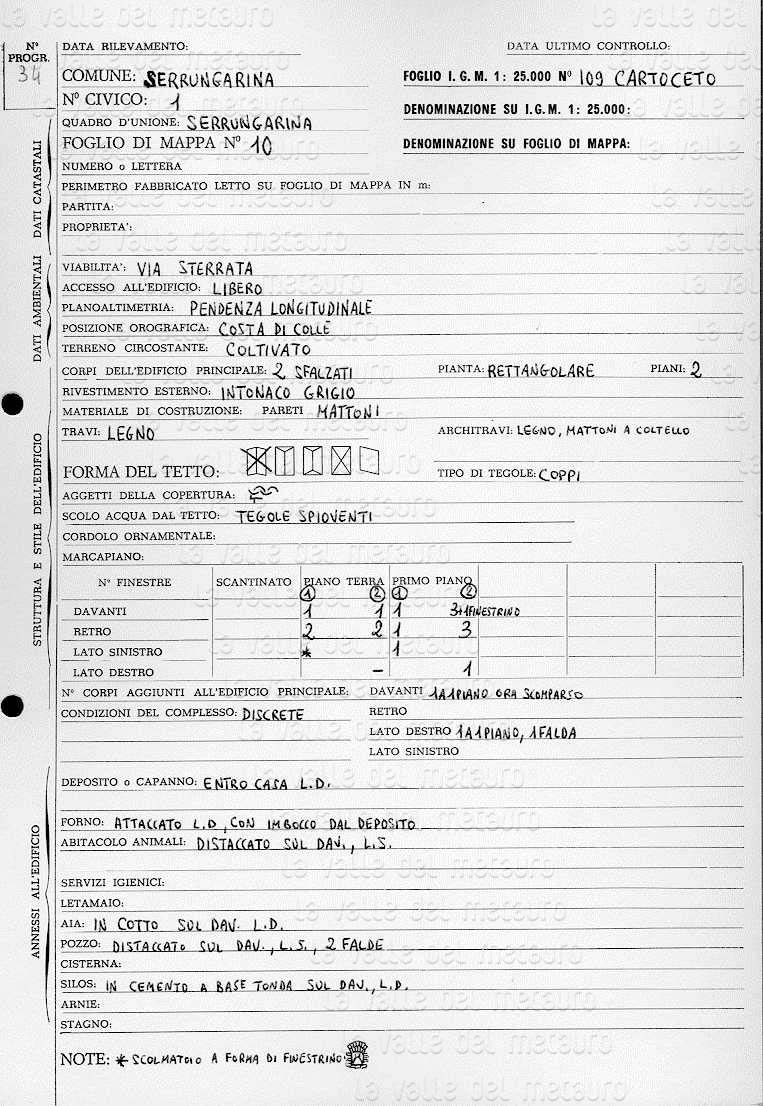 N° PROGR. 34
DATA RILEVAMENTO: DATA ULTIMO CONTROLLO:
COMUNE: SERRUNGARINA FOGLIO I.G.M. 1: 25.000 N° 109 CARTOCETO
N° CIVICO: 1 DENOMINAZIONE SU I.G.M. 1: 25.000:
QUADRO D'UNIONE: SERRUNGARINA
FOGLIO DI MAPPA N° 10 DENOMINAZIONE SU FOGLIO DI MAPPA:
NUMERO o LETTERA
PERIMETRO FABBRICATO LETTO SU FOGLIO DI MAPPA IN m:
PARTITA:
PROPRIETA':
DATI CATASTALI
VIABILITA': VIA STERRATA
ACCESSO ALL'EDIFICIO: LIBERO
PLANOALTIMETRIA: PENDENZA LONGITUDINALE
POSIZIONE OROGRAFICA: COSTA DI COLLE
TERRENO CIRCOSTANTE: COLTIVATO
DATI AMBIENTALI
CORPI DELL'EDIFICIO PRINCIPALE: 2 SFALZATI PIANTA: RETTANGOLARE PIANI: 2
RIVESTIMENTO ESTERNO: INTONACO GRIGIO
MATERIALE DI COSTRUZIONE: PARETI MATTONI
TRAVI: LEGNO ARCHITRAVI: LEGNO, MATTONI A COLTELLO
FORMA DEL TETTO: TIPO DI TEGOLE: COPPI
AGGETTI DELLA COPERTURA:
SCOLO ACQUA DAL TETTO: TEGOLE SPIOVENTI
CORDOLO ORNAMENTALE:
MARCAPIANO:
N° FINESTRE SCANTINATO PIANO TERRA PRIMO PIANO
1 2 1 2
DAVANTI 1 1 1 3+1FINESTRINO
RETRO 2 2 1 3
LATO SINISTRO * 1
LATO DESTRO – 1
STRUTTURA E STILE DELL'EDIFICIO
N° CORPI AGGIUNTI ALL'EDIFICIO PRINCIPALE: DAVANTI 1A1PIANO ORA SCOMPARSO
CONDIZIONI DEL COMPLESSO: DISCRETE RETRO
LATO DESTRO 1A1PIANO, 1FALDA
LATO SINISTRO
DEPOSITO o CAPANNO: ENTRO CASA L.D.
FORNO: ATTACCATO L.D, CON IMBOCCO DAL DEPOSITO
ABITACOLO ANIMALI: DISTACCATO SUL DAV., L.S.
SERVIZI IGIENICI:
LETAMAIO:
AIA: IN COTTO SUL DAV. L.D.
POZZO: DISTACCATO SUL DAV., L.S., 2 FALDE
CISTERNA:
SILOS: IN CEMENTO A BASE TONDA SUL DAV., L.D.
ARNIE:
STAGNO:
ANNESSI ALL'EDIFICIO
NOTE: * SCOLMATOIO A FORMA DI FINESTRINO
la valle del metauro